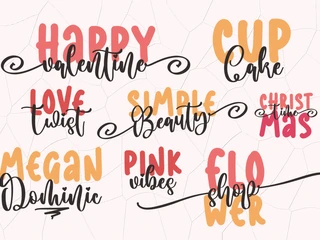 HAPPY
valentine
CUP
Cake
LOVE
twist
SIMPLE
Beauty
CHRIST
Mas
MEGAN
Dominic
PINK
vibes
FLO
shop
WER